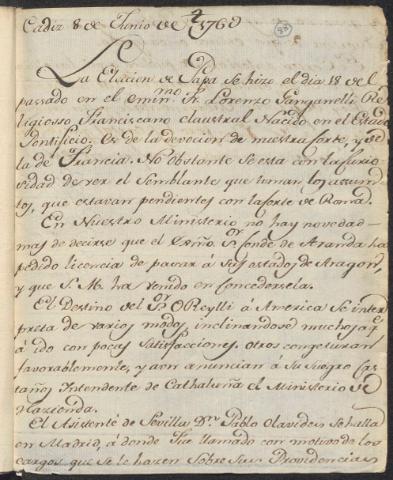 Cadiz 8 de Junio de 1769
La Eleccion de Papa se hizo el dia 18 del
passado en el Emin.mo Fr. Lorenzo Ganganelli Re-
ligiosso Franciscano claustral Nacido en el Estado
Pontificio. Es de la devocion de nuestra Corte, y de
la de Francia. No obstante se esta con la curio-
sidad de ver el Semblante que toman los assump-
tos, que estavan pendientes con la Corte de Roma.
En Nuestro Ministerio no hay novedad
mas de decirse que el Exmo. Sr. Conde de Aranda ha
pedido licencia de passar á sus estados de Aragon,
y que S. M. ha venido en concedersela.
El Destino del Sr. OReylli á America se inter
preta de varios modos, inclinandose muchos á q.
á ido con pocas satisfacciones. Otros congeturan
favorablemente, y aun anuncian á su Suegro Cas-
taños Intendente de Cathaluña el Ministerio de
Hazienda.
El Asistente de Sevilla Dn. Pablo Olavides se halla
en Madrid, á donde fue llamado con motivo de los
cargos que se le hazen sobre sus Providencias